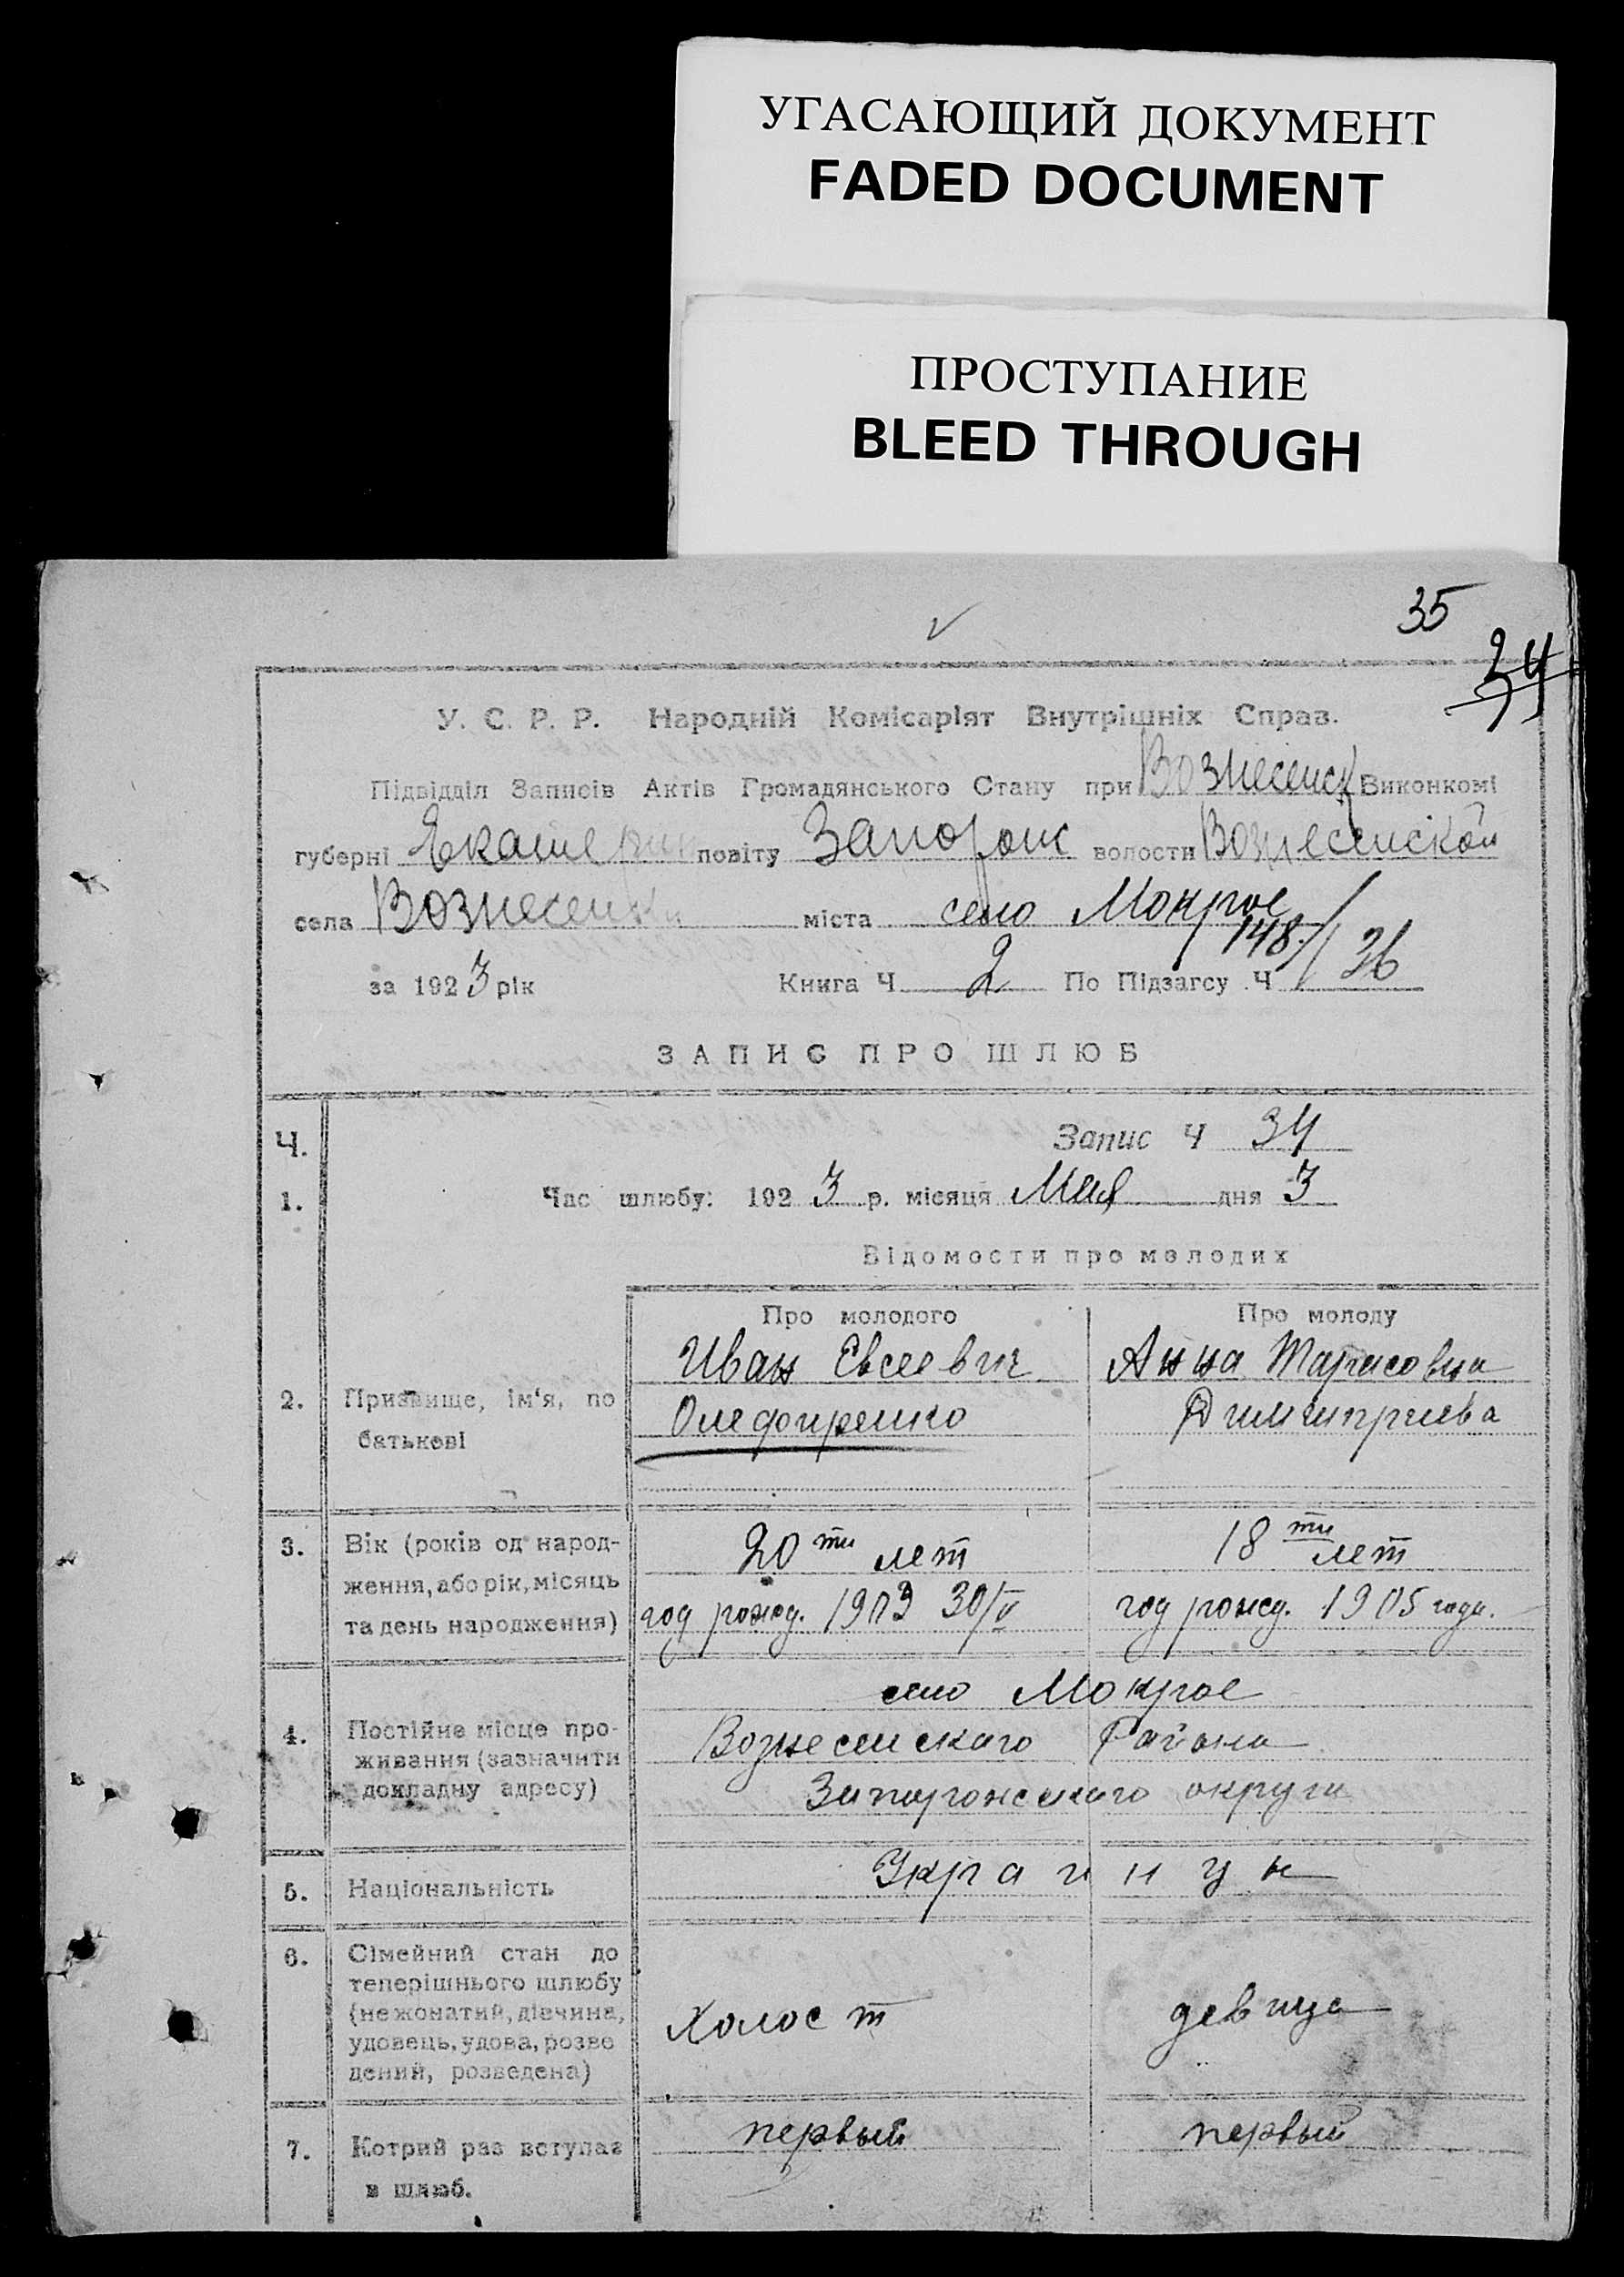 УГАСАЮЩИЙ ДОКУМЕНТ
FADED DOCUMENT
ПРОСТУПАНИЕ
BLEED THROUGH
35
34
У. С. Р. Р. Народній Комісаріят Внутрішніх Справ.
Підвідділ Записів Актів Громадянського Стану при Вознесенск Виконкомі
губерні Екатерин повіту Запорож волости Вознесенской
села Вознесенки міста село Мокрое
148/36
за 1923 рік Книга Ч 2 По Підзагсу Ч
ЗАПИС ПРО ШЛЮБ
Ч. Запис Ч 34
1. Час шлюбу: 1923 р. місяця Мая дня 3
Відомости про молодих
Про молодого Про молоду
Иван Евсеевич Анна Тарасовна
2. Призвище, ім'я, по батькові Дмитриева
3. Вік (років од народ- 20 ти лет 18 ти лет
ження, або рік, місяць
та день народження) год рожд. 1903 30/V год рожд. 1905 года.
село Мокрое
4. Постійне місце про- Вознесенскаго Района
живання (зазначити
докладну адресу) Запорожскаго округа
5. Національність Украинцы
6. Сімейний стан до
теперішнього шлюбу
(нежонатий, дівчина, Холост девица
удовець, удова, розве
дений, розведена)
7. Котрий раз вступає первый первый
в шлюб.